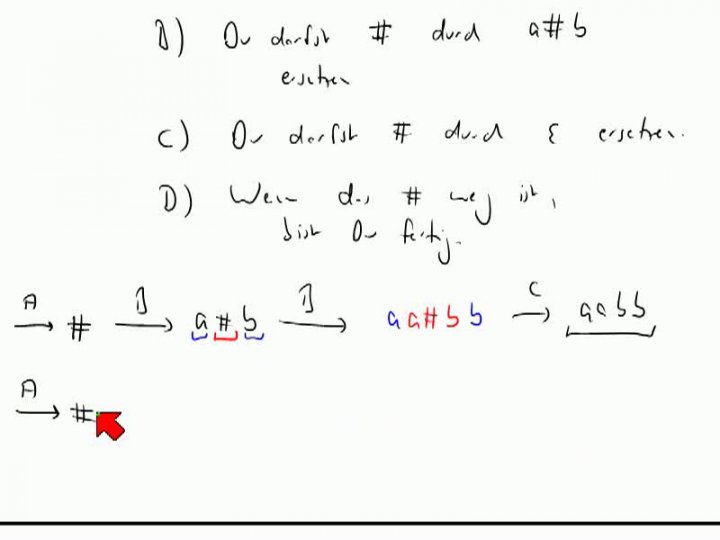 B) Du darfst # durch a#b
ersetzen
C) Du darfst # durch ε ersetzen.
D) Wenn das # weg ist,
bist Du fertig.
A → # B → a#b B → aa#bb C → aabb
A → #